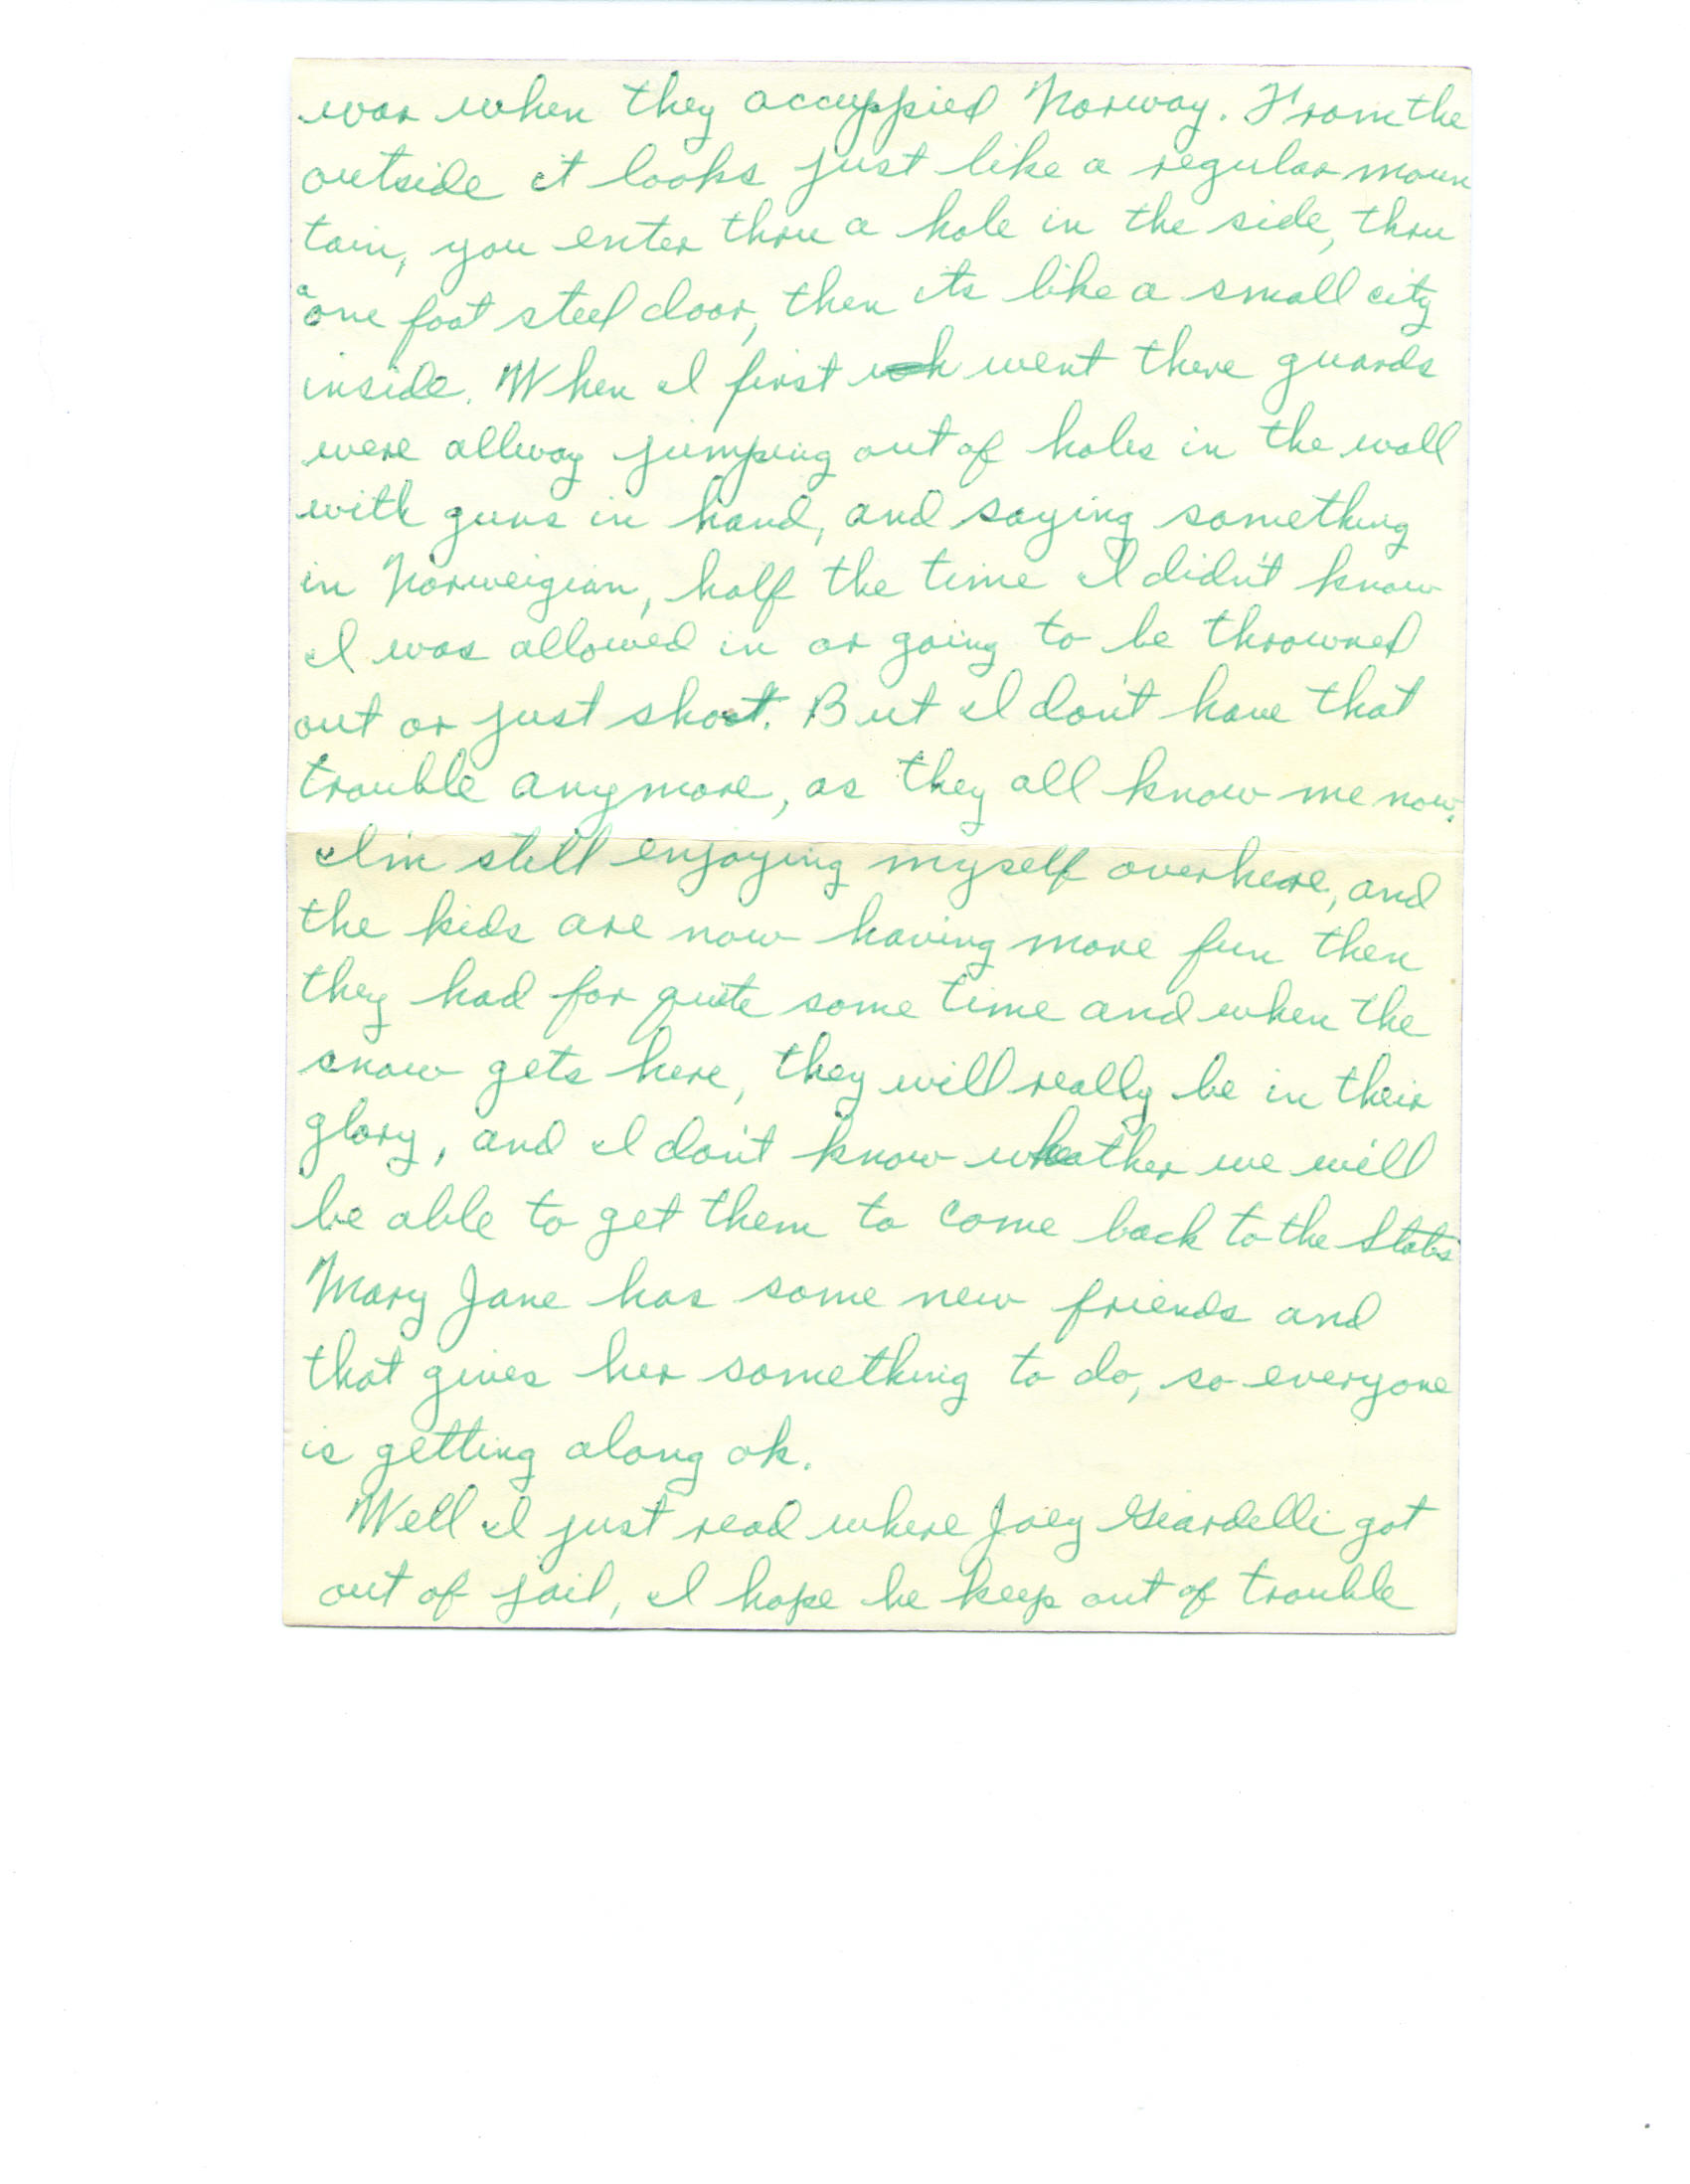 war when they accuppied Norway. From the
outside it looks just like a regular moun
tain, you enter thru a hole in the side, thru
a one foot steel door, then its like a small city
inside. When I first went there guards
were allway jumping out of holes in the wall
with guns in hand, and saying something
in Norweigian, half the time I didn't know
I was allowed in or going to be throwned
out or just shoot. But I don't have that
trouble anymore, as they all know me now.
I'm still enjoying myself overhere, and
the kids are now having more fun then
they had for quite some time and when the
snow gets here, they will really be in their
glory, and I don't know wheather we will
be able to get them to come back to the States
Mary Jane has some new friends and
that gives her something to do, so everyone
is getting along ok.
Well I just read where Joey Giardelli got
out of jail, I hope he keep out of trouble